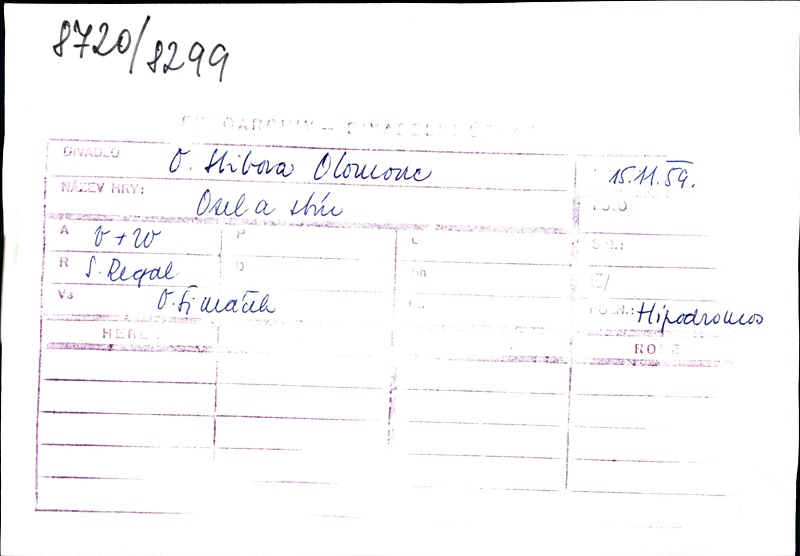 8720/8299
DIVADLO O. Stibora Olomouc 15.11.59.
NÁZEV HRY: Osel a stín
A V + W P L
R S. Regal
Vs O. Šimáček
Hipodromos
HERE ROLE